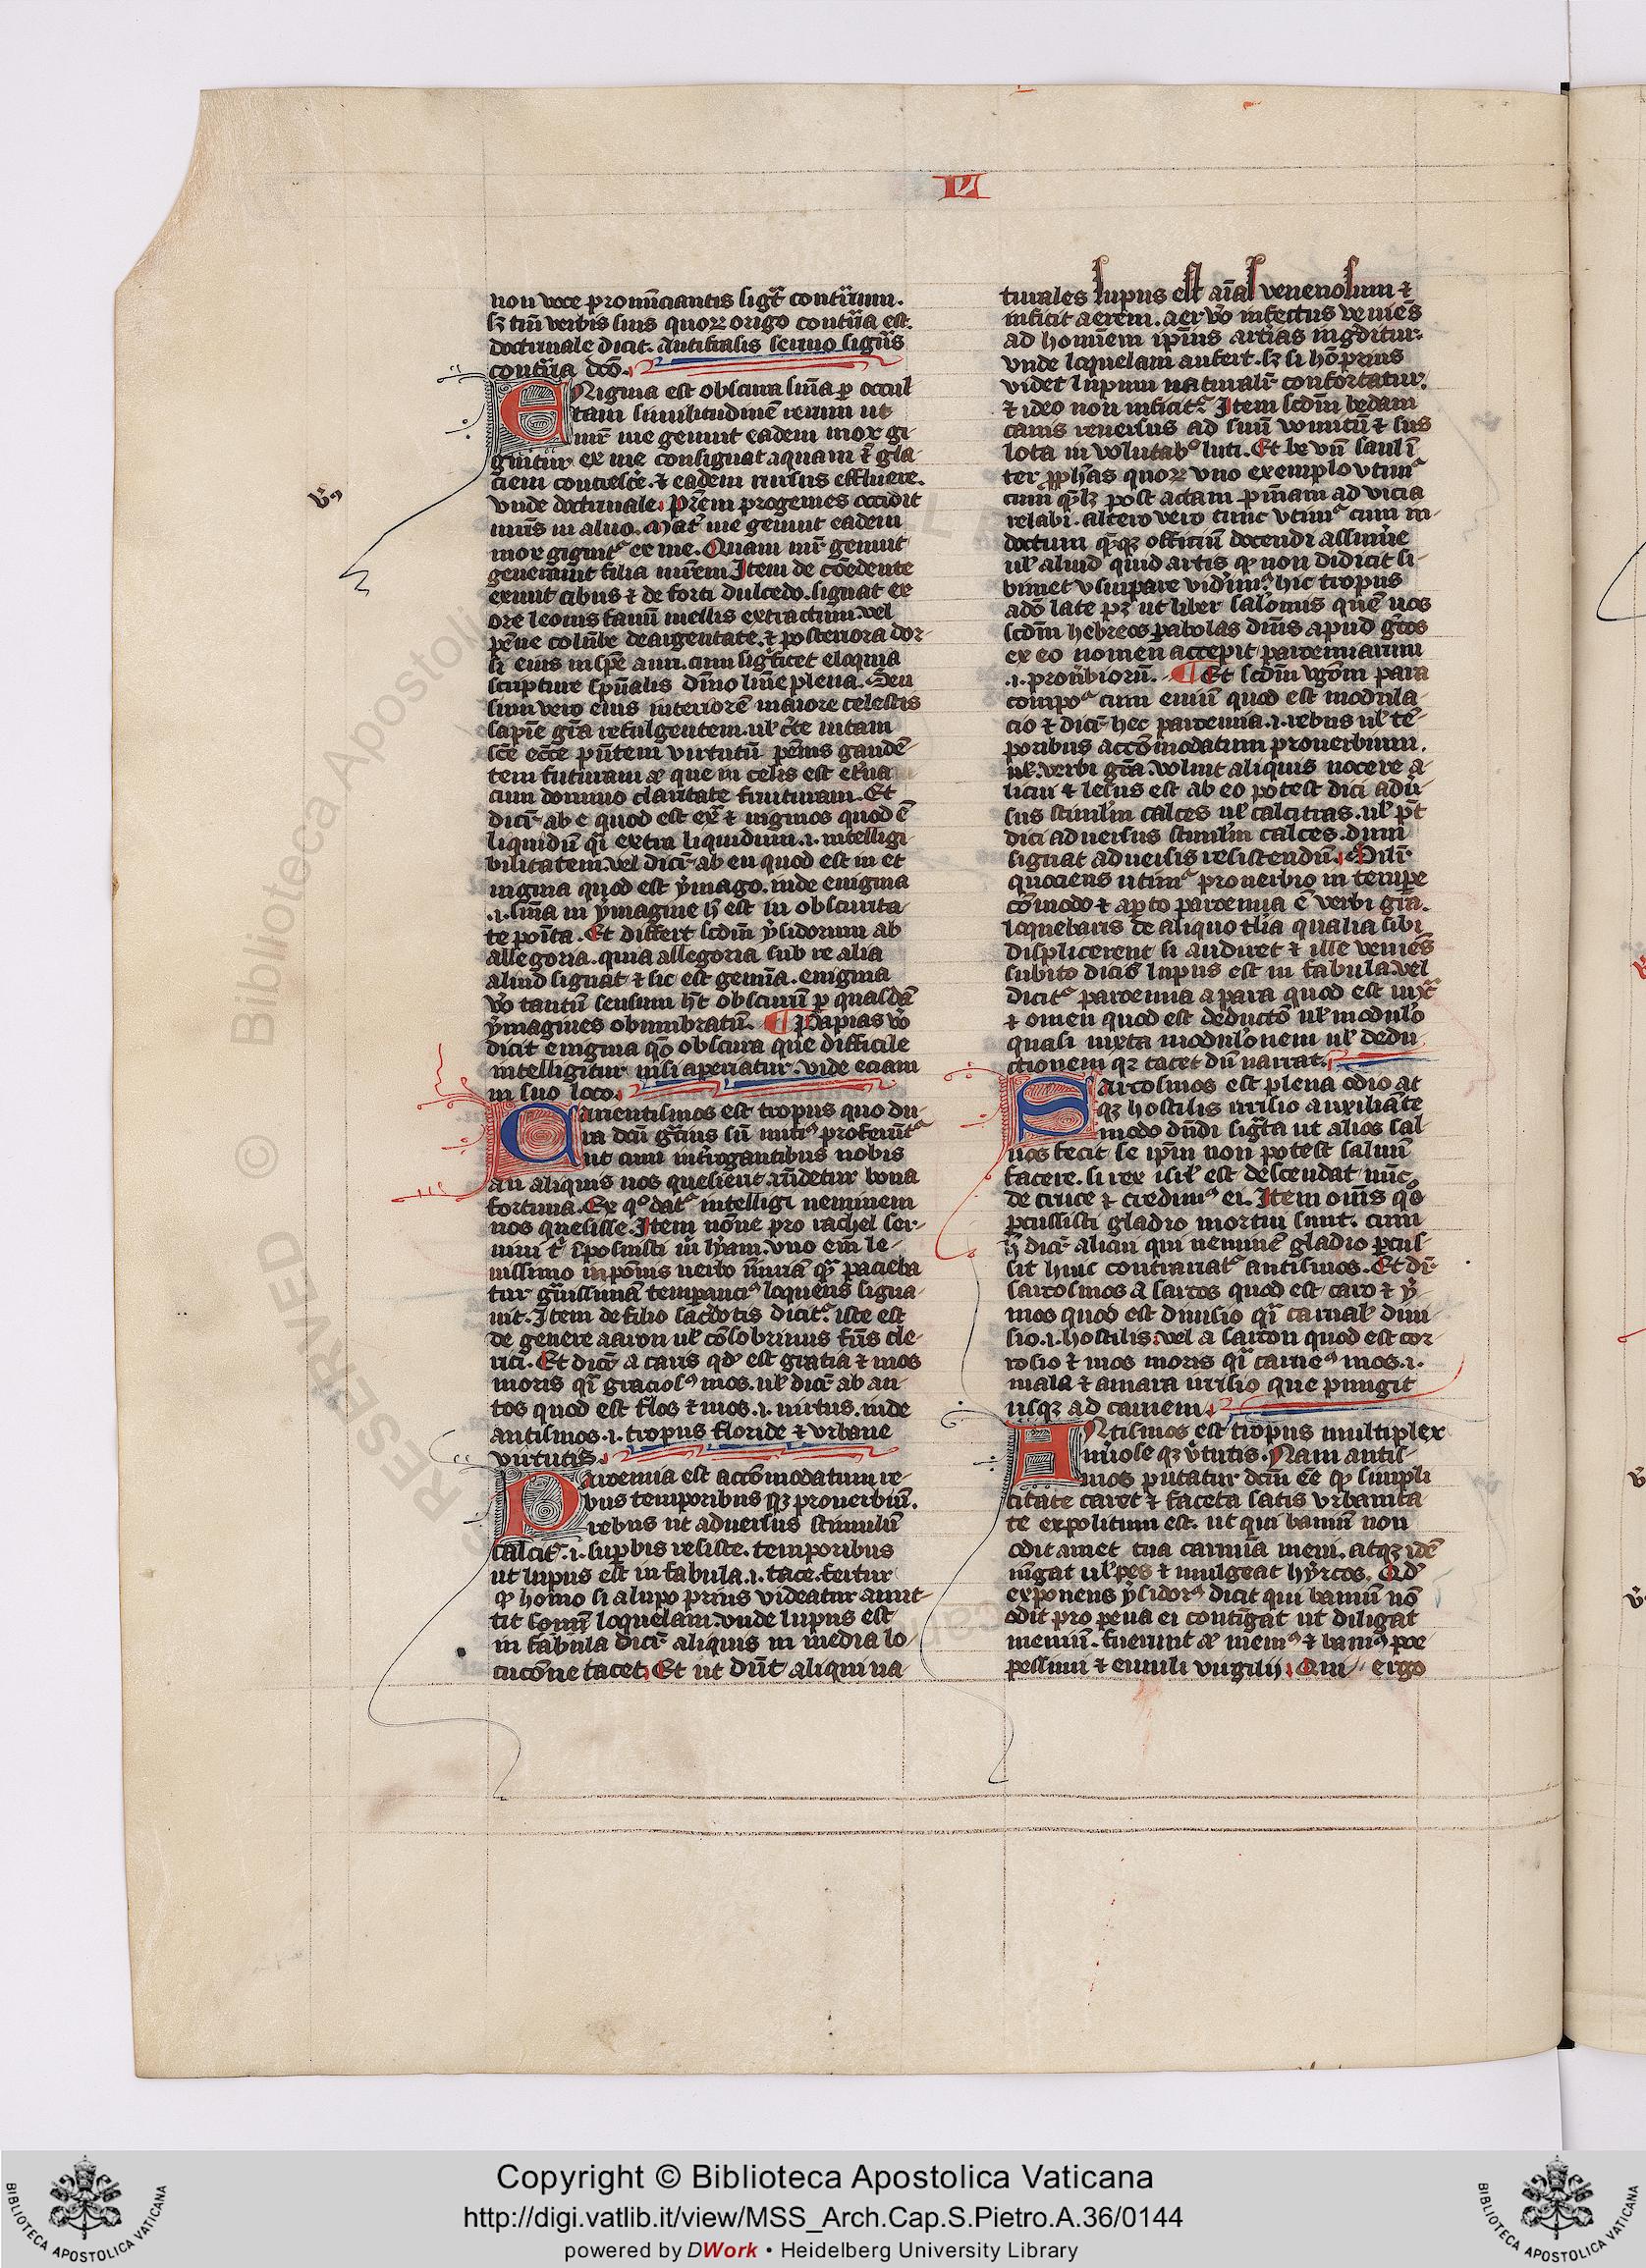 IV
non voce pronunciantis sigt contrium.
sz tm verbis suis quorz origo contria est.
doctrinale dicit. Antifrasis sermo signans
contria dco.
ENigma est obscura snia p occul
tam similitudine rerum ut
mr me genuit eadem mox gi
gnitur ex me consignat aquam i gla
ciem concresce. et eadem rursus effluere.
vnde doctrinale. prem progenies occidit
mris in aluo. Mat me genuit eadem
mox gignit ex me. Quam mr genuit
generauit filia mrem Item de comedente
exiuit cibus et de forti dulcedo. signat ex
ore leonis fauum mellis extractum. vel
penne columbe deargentate et posteriora dor
si eius in spe auri. cum significet eloquia
scripture spualis dino lumine plena. Sen
sum vero eius interiore maiore celestis
sapie gra refulgentem. ul certe uitam
sce eccle pntem virtutu pennis gaude
tem futuram que in celis est eterna
cum domino claritate fruituram. Et
dicr ab e quod est ex et nigmos quod e
liquidu qi extra liquidum .i. intelligi
bilitatem. vel dicr ab en quod est in et
nigma quod est ymago. inde enigma
.i. snia in ymagine h est in obscurita
te poita. Et differt scdm ysidorum ab
allegoria. quia allegoria sub re alia
aliud signat et sic est gemina. enigma
vo tantu sensum ht obscuru p quasda
ymagines obumbratu. Papias vo
dicit enigma qo obscura que difficile
intelligitur nisi aperiatur. vide eciam
in suo loco.
Carientismos est tropus quo du
ra dcu gratius su mitis proferunt
ut cum interrogantibus nobis
an aliquis nos quesierit rndetur bona
fortuna. Ex quo dat intelligi neminem
nos quesisse. Item nonne pro rachel ser
uiui t iposuisti m lyam. vno em le
uissimo inponis uerbo iniuria qua pacieba
tur grauissima temperancius loquens signa
uit. Item de filio sacerdotis dicit. iste est
de genere aaron ul cosobrinus frus cle
rici. Et dicr a caris qd est gratia et mos
moris qi graciosus mos. ul dicr ab an
tos quod est flos et mos .i. uirtus. inde
antismos .i. tropus floride et vrbane
virtutis.
Paroemia est accomodatum re
bus temporibus qz prouerbiu.
rebus ut aduersus stimulu
calcit. i. supbis resiste. temporibus
ut lupus est in fabula .i. tace. fertur
q homo si a lupo prius videatur amit
tit sonum loquelam. vnde lupus est
in fabula dicr aliquis in media lo
cucone tacet. Et ut dnt aliqui na
turales lupus est aial venenosum et
inficit aerem. aer vo infectus venies
ad hominem ipius artias ingreditur.
vnde loquelam aufert. sz si ho prius
videt lupum naturalr confortatur.
et ideo non inficit. Item scdm bedam
canis reuersus ad suu vomitu et sus
lota in volutab luti. Et be vn saul i
ter prophas quorz vno exemplo vtim
cum qlz post actam pniam ad vicia
relabi. altero vero tunc vtim cum in
doctum qqz officiu docendi assumere
ul aliud quid artis q non didicit si
bimet vsurpare viderimus. hic tropus
ado late pz ut liber salomonis que nos
scdm hebreos pabolas dim9 apud grcos
ex eo nomen accepit paroemiarum
.i. prouerbioru. Et scdm vgom para
compo cum enim quod est modula
cio et dicr hec paroemia .i. rebus ul te
poribus accomodatum prouerbium.
ul verbi gra. voluit aliquis nocere a
licui et lesus est ab eo potest dici adu
sus stimulum calces ul calcitras. ul pt
dici aduersus stimulum calces. dum
signat aduersis resistendu. Silr
quociens utim prouerbio in tempe
comodo et apto paroemia e verbi gra.
loquebaris de aliquo talia qualia sibi
displicerent si audiret et ille venies
subito dicis lupus est in fabula. vel
dicit paroemia a para quod est iuxta
et omen quod est deducto ul modulo
quasi iuxta modulonem ul dedu
ctionem qz tacet du narrat.
Sarcosmos est plena odio at
qz hostilis irrisio auxiliate
modo dndi sigta ut alios sal
uos fecit se ipm non potest saluu
facere. si rex isrl est descendat nunc
de cruce et credim ei. Item omis quos
pcussisti gladio mortui sunt. cum
h dicr alicui qui nemine gladio pcus
sit huic contrariat antismos. Et dr
sarcosmos a sarcos quod est caro et y
mos quod est diuisio qi carnal diui
sio .i. hostilis. vel a sarcon quod est cor
rosio et mos moris qi carneus mos .i.
mala et amara irrisio que pungit
usqz ad carnem.
ANtismos est tropus multiplex
nuose qz vtutis. Nam antis
mos putatur dcm ee q simpli
citate caret et faceta satis vrbanita
te expolitum est. ut qui bauiu non
odit amet tua carmia meui. atqz ide
iugat ulpes et mulgeat hyrcos. Qd
exponens ysidorus dicit qui bauiu no
odit pro pena ei contigat ut diligat
meuiu. fuerunt meuius et bauius poe
pessimi et emuli virgilij. Qui ergo
Copyright © Biblioteca Apostolica Vaticana
http://digi.vatlib.it/view/MSS_Arch.Cap.S.Pietro.A.36/0144
powered by DWork • Heidelberg University Library